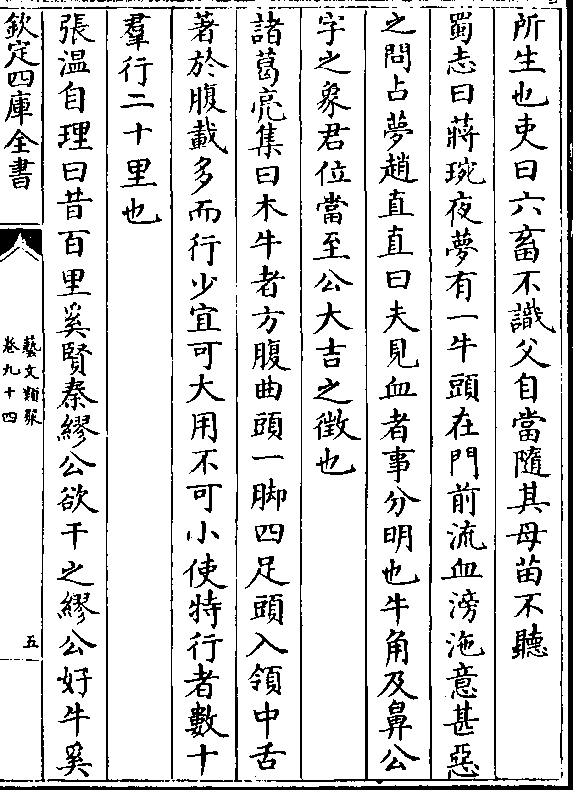 所生也吏曰六畜不識父自當隨其母苗不聽
蜀志曰蔣琬夜夢有一牛頭在門前流血滂沲意甚惡
之問占夢趙直直曰夫見血者事分明也牛角及鼻公
字之象君位當至公大吉之徵也
諸葛亮集曰木牛者方腹曲頭一脚四足頭入領中舌
著於腹載多而行少宜可大用不可小使特行者數十
羣行二十里也
張温自理曰昔百里奚賢秦繆公欲干之繆公好牛奚
欽定四庫全書
藝文類聚
卷九十四
五